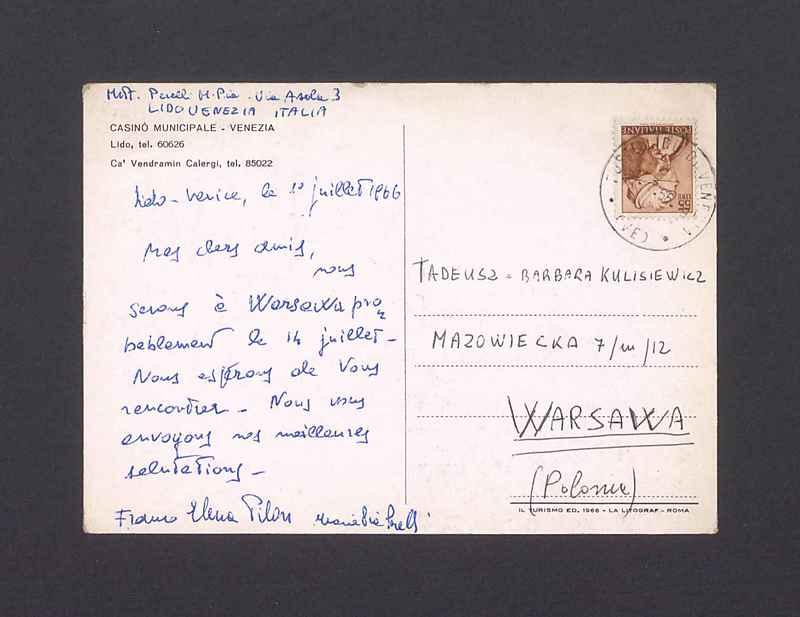 Mitt. M. Pia - Via Asolo 3
LIDO VENEZIA ITALIA
CASINÒ MUNICIPALE - VENEZIA
Lido, tel. 60626
Ca' Vendramin Calergi, tel. 85022
Lido-Venice, le 10 juillet 1966
Mes chers amis,
nous
serons à Warsawa pro
bablement le 14 juillet -
Nous espérons de vous
rencontrer - Nous vous
envoyons nos meilleures
salutations -
Franco Elena Pilon Maria Pia
POSTE ITALIANE
LIRE 55
(VE)
TADEUSZ - BARBARA KULISIEWICZ
MAZOWIECKA 7/m/12
WARSAWA
(Polonia)
IL TURISMO ED. 1966 - LA LITOGRAF - ROMA